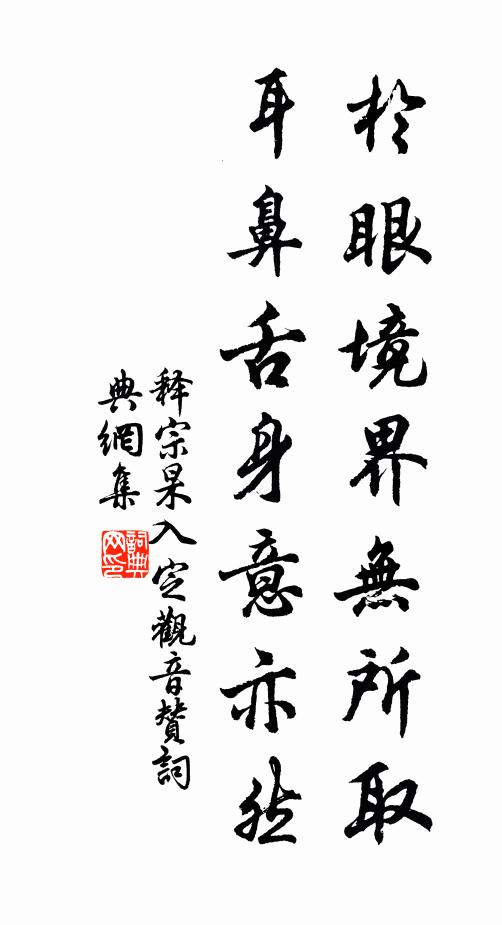 於眼境界無所取
耳鼻舌身意亦然
释宗杲入定觀音赞詞
典網集
詞典
网印